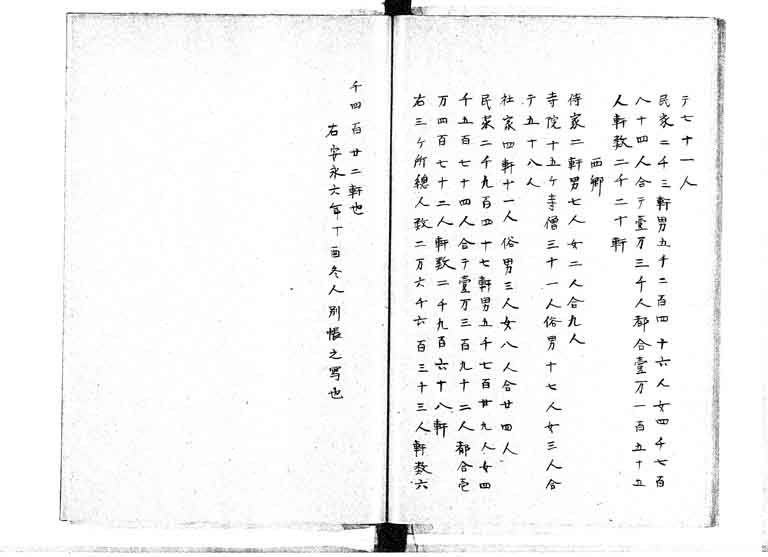 テ七十一人
民家二千三軒男五千二百四十六人女四千七百
八十四人合テ壹万三千人都合壹万一百五十五
人軒数二千二十軒
西郷
侍家二軒男七人女二人合九人
寺院十五ヶ寺僧三十一人俗男十七人女三人合
テ五十八人
社家四軒十一人俗男三人女八人合廿四人
民家二千九百四十七軒男五千七百廿九人女四
千五百七十四人合テ壹万三百九十二人都合壱
万四百七十二人軒数二千九百六十八軒
右三ヶ所總人数二万六千六百三十三人軒数六
千四百廿二軒也
右安永六年丁酉冬人別帳之写也